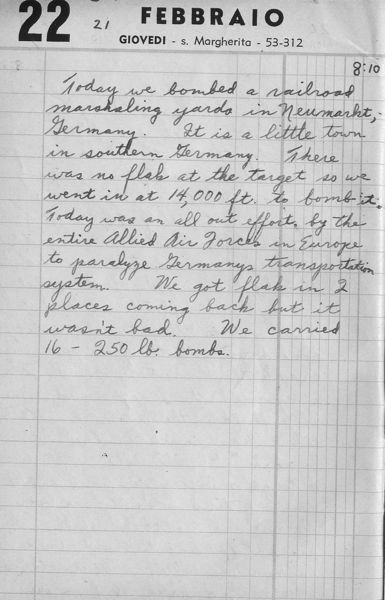 22 21 FEBBRAIO
GIOVEDI - s. Margherita - 53-312
8:10
Today we bombed a railroad
marshaling yards in Neumarkt,
Germany. It is a little town
in southern Germany. There
was no flak at the target so we
went in at 14,000 ft. to bomb it.
Today was an all out effort, by the
entire Allied Air Forces in Europe
to paralyze Germanys transportation
system. We got flak in 2
places coming back but it
wasn't bad. We carried
16 - 250 lb. bombs.